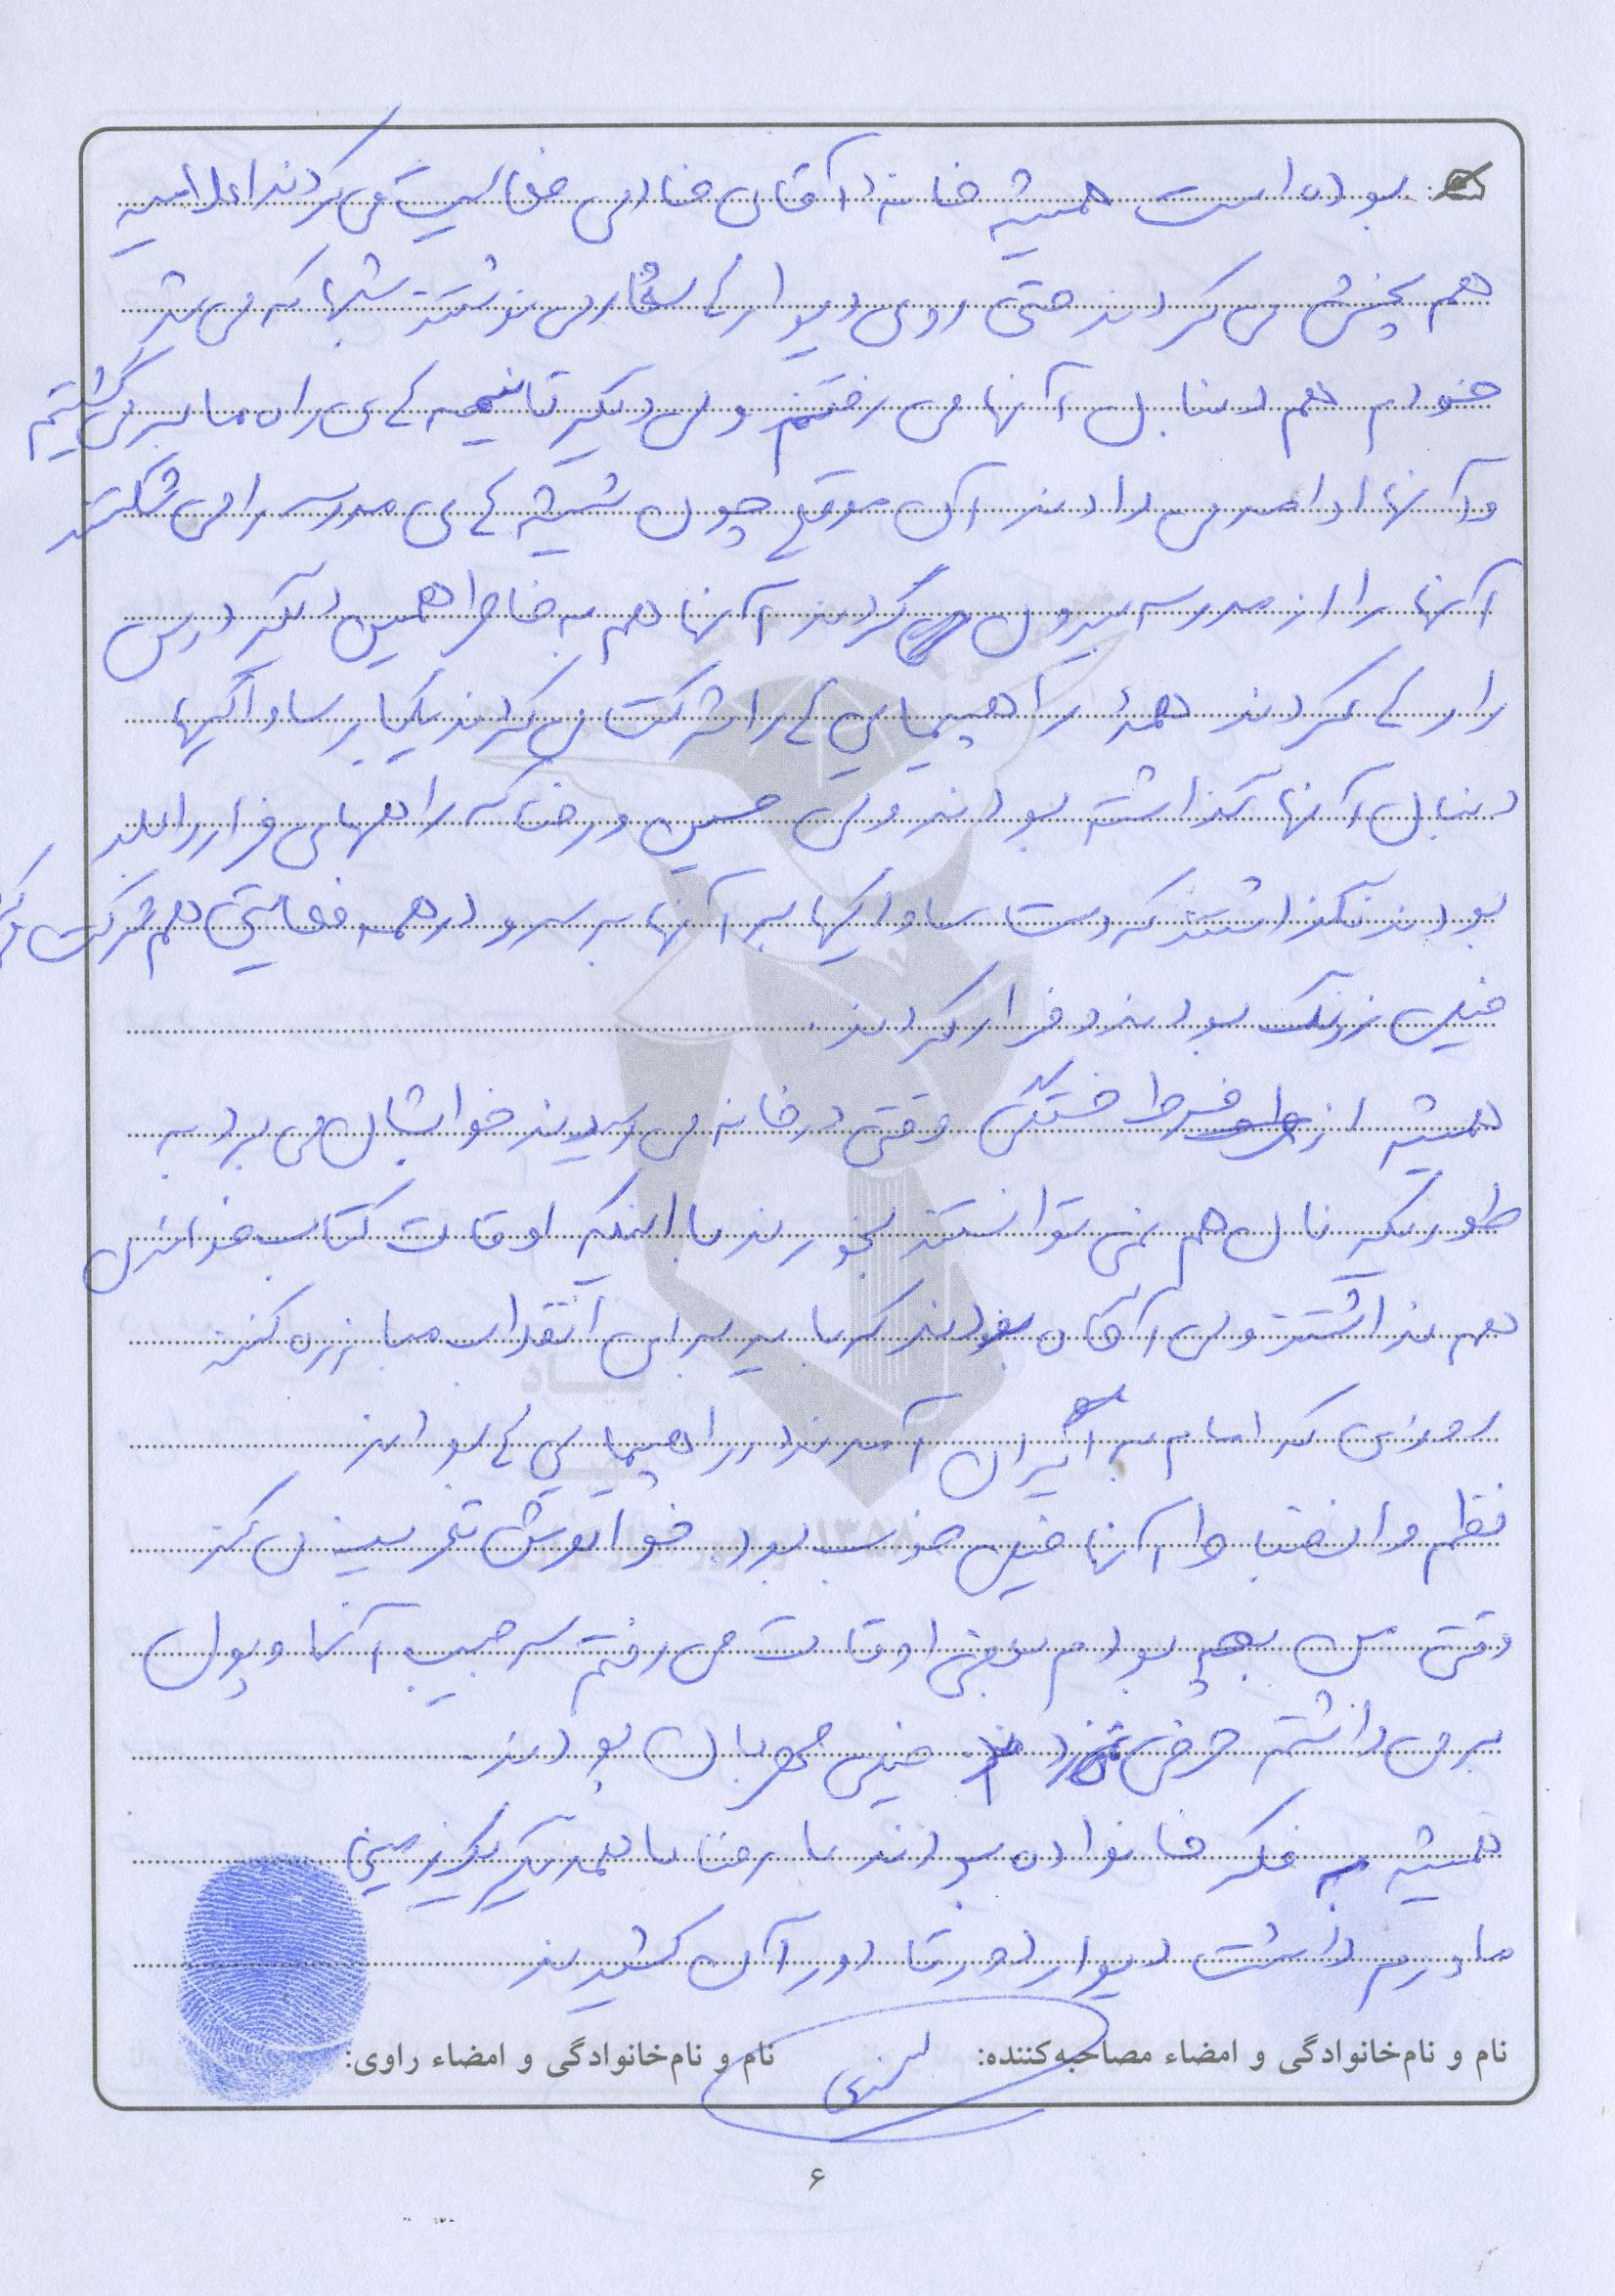 بوده است همیشه خانه آقای خادمی فعالیت می کردند اعلامیه
هم پخش می کردند حتی روی دیوارها شعار می نوشتند شبها که می شد
خودم هم دنبال آنها می رفتم ولی دیگر تا نیمه های راه ما برمی گشتیم
و آنها ادامه می دادند آن موقع چون شیشه های مدرسه را می شکستند
آنها را از مدرسه بیرون کردند آنها هم به خاطر همین دیگر درس
را رها کردند همهٔ راهپیمایی ها را شرکت می کردند یکبار ساواکیها
دنبال آنها گذاشته بودند ولی حسین و رضا که راههای فرار را بلد
بودند نگذاشتند که دست ساواکیها به آنها برسد و در همه فعالیتی هم شرکت
خیلی زرنگ بودند و فرار کردند.
همیشه از فرط خستگی وقتی در خانه می رسیدند خوابشان می برد به
طوریکه نان هم نمی توانستند بخورند با اینکه اوقات کتاب خواندن
هم نداشتند ولی آگاه بودند که باید برای انقلاب مبارزه کنند
روزی که امام به ایران آمدند در راهپیمایی ها بودند
نظم و انضباط آنها خیلی خوب بود. خواهرش تعریف می کند
وقتی من بچه بودم بعضی اوقات می رفتم سر جیب آنها و پول
برمی داشتم حرفی نمی زدند خیلی مهربان بودند.
همیشه به فکر خانواده بودند با رضا با همدیگر یک زمینی
مادرم داشت دیوار دور تا دور آن کشیدند
نام و نام‌خانوادگی و امضاء مصاحبه‌کننده:
نام و نام‌خانوادگی و امضاء راوی:
۶